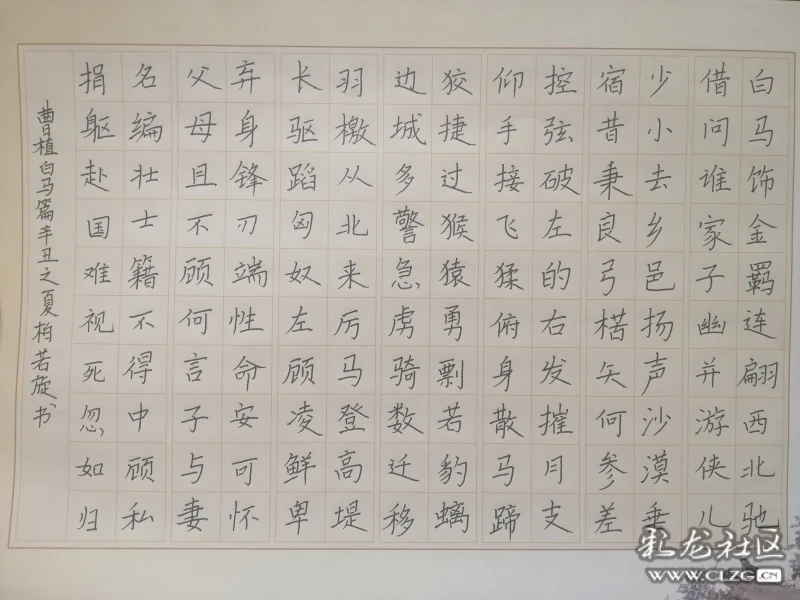 白马饰金羁连翩西北驰
借问谁家子幽并游侠儿
少小去乡邑扬声沙漠垂
宿昔秉良弓楛矢何参差
控弦破左的右发摧月支
仰手接飞猱俯身散马蹄
狡捷过猴猿勇剽若豹螭
边城多警急虏骑数迁移
羽檄从北来厉马登高堤
长驱蹈匈奴左顾凌鲜卑
弃身锋刃端性命安可怀
父母且不顾何言子与妻
名编壮士籍不得中顾私
捐躯赴国难视死忽如归
曹植白马篇辛丑之夏柏若旋书
乳龙社区
www.CLZG.CN